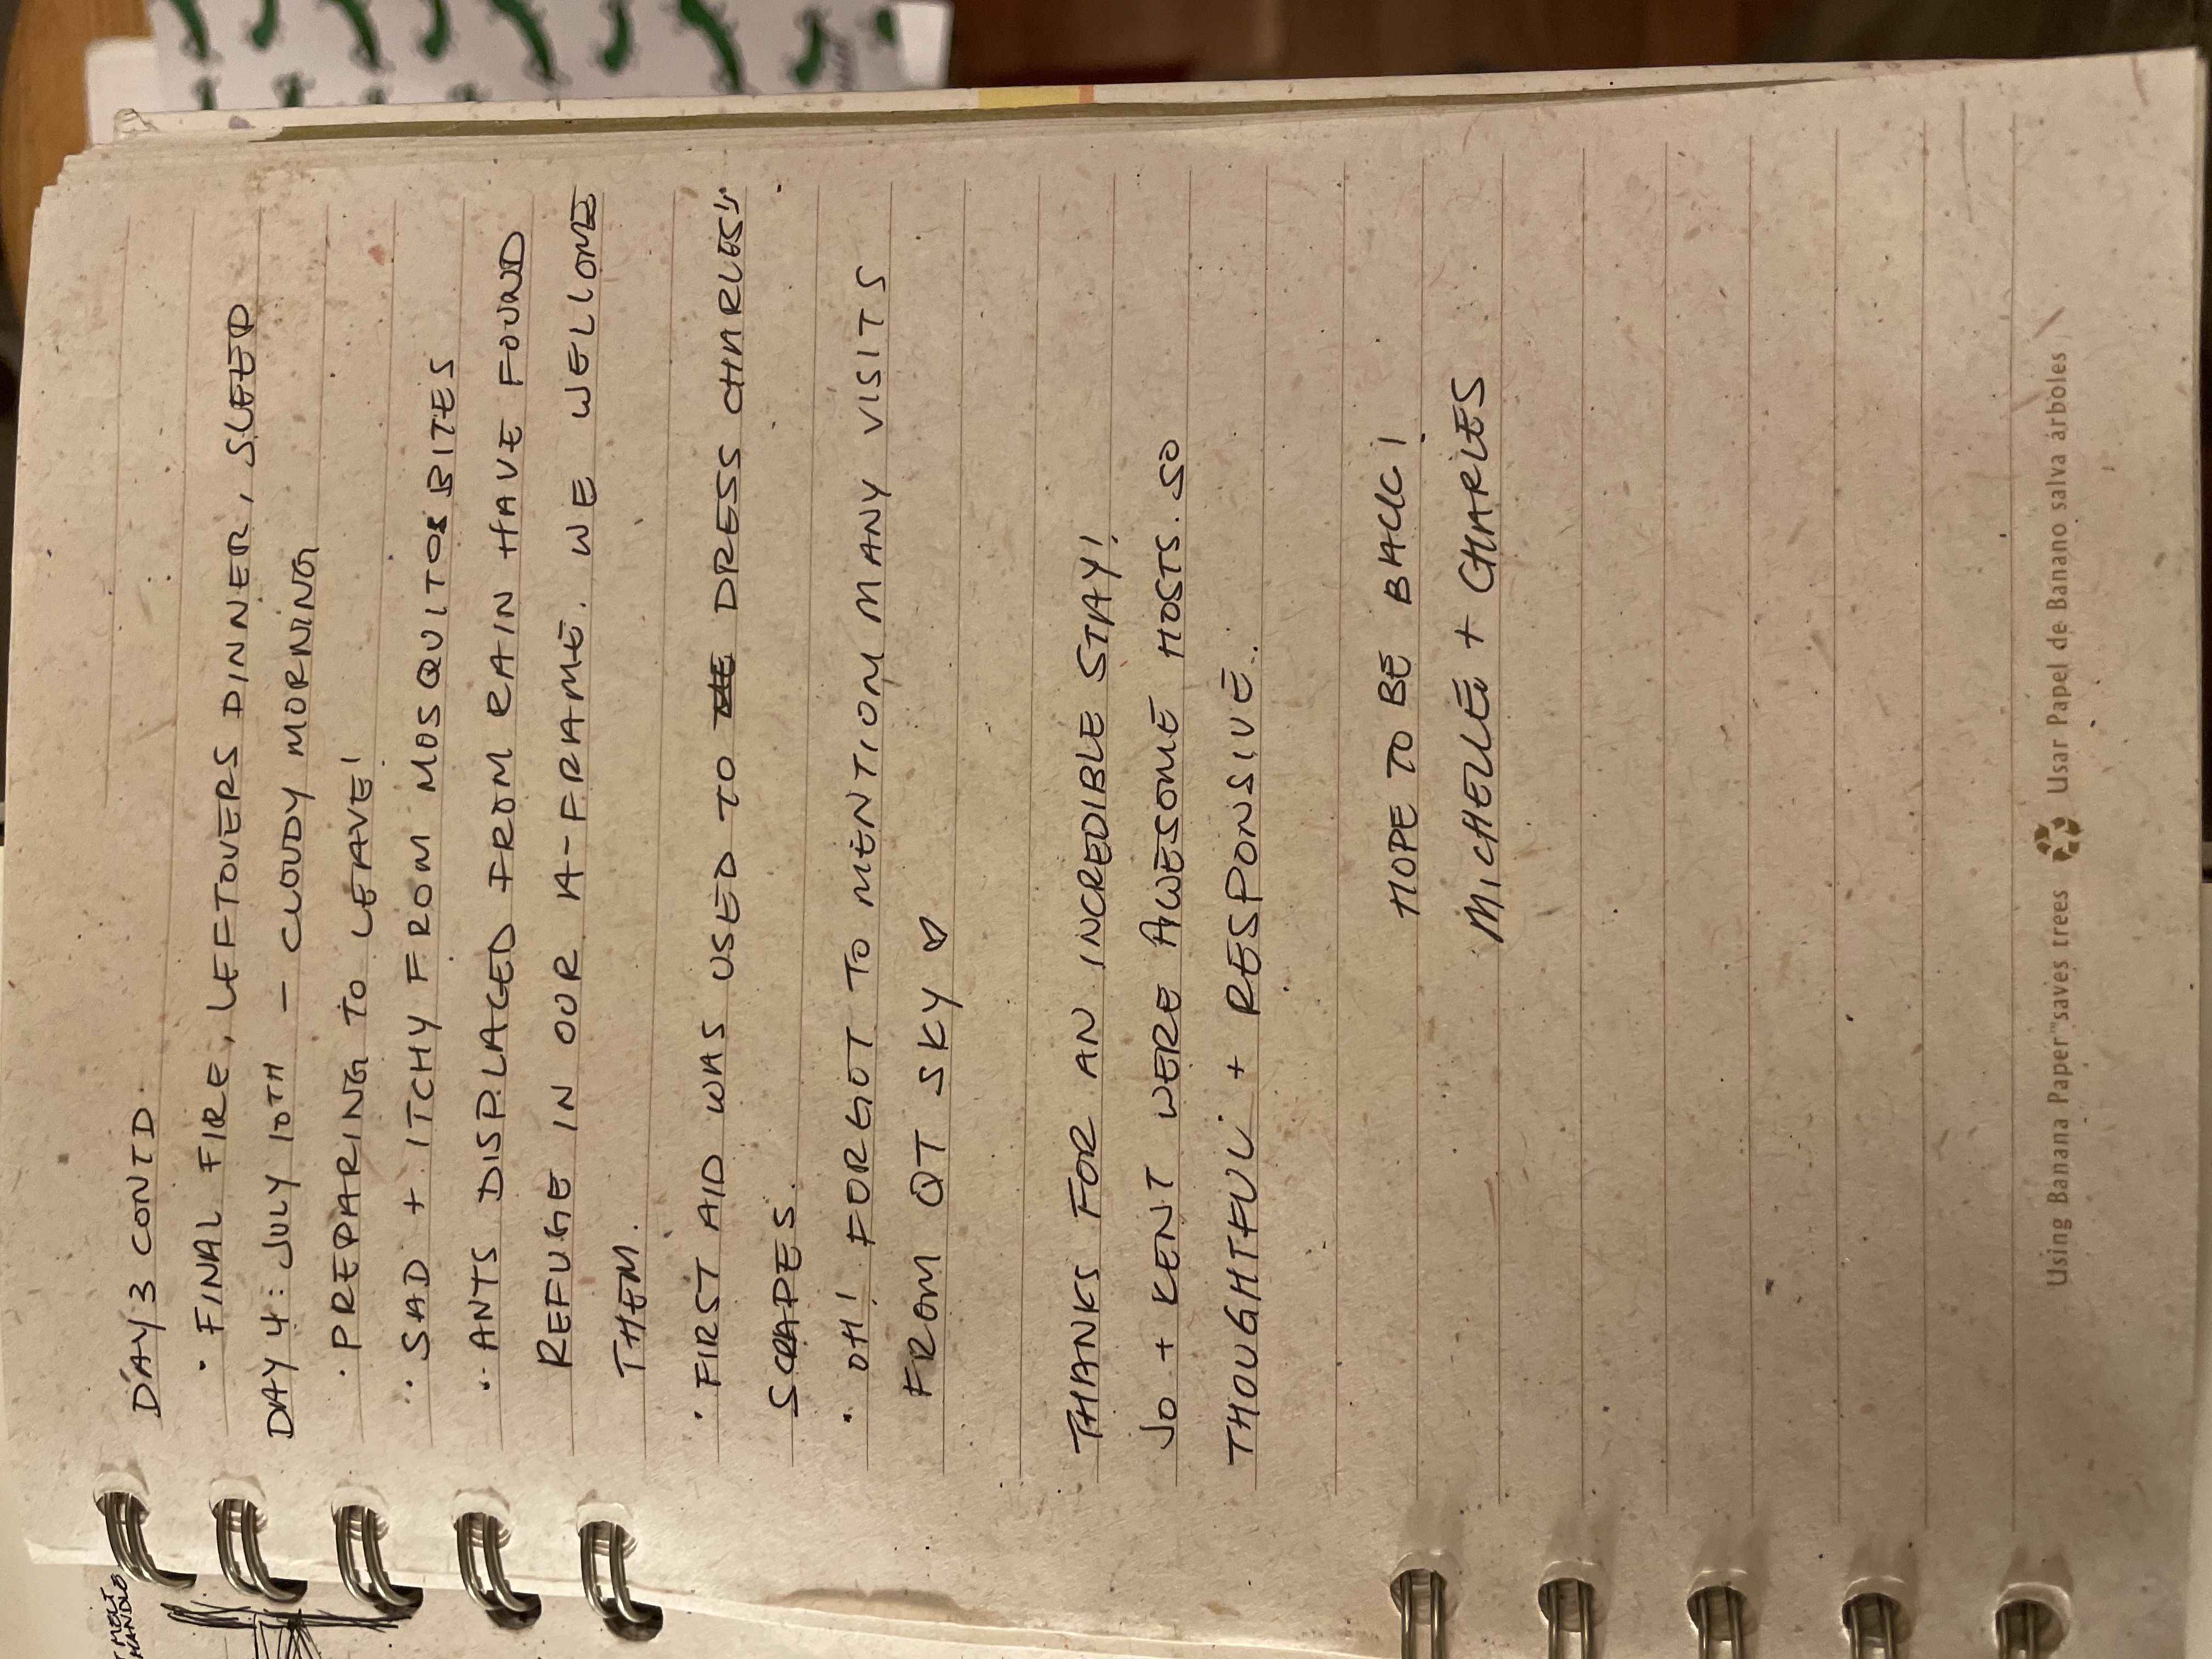 T MELT
HANDLE
DAY 3 CONTD.
· FINAL FIRE, LEFTOVERS DINNER, SLEEP
DAY 4: JULY 10TH — CLOUDY MORNING
· PREPARING TO LEAVE!
· SAD + ITCHY FROM MOSQUITOS BITES
· ANTS DISPLACED FROM RAIN HAVE FOUND
REFUGE IN OUR A-FRAME. WE WELCOME
THEM.
· FIRST AID WAS USED TO DRESS CHARLES'S
SCRAPES.
· OH! FORGOT TO MENTION MANY VISITS
FROM QT SKY ♡
THANKS FOR AN INCREDIBLE STAY!
JO + KENT WERE AWESOME HOSTS. SO
THOUGHTFUL + RESPONSIVE.
HOPE TO BE BACK!
MICHELLE + CHARLES
Using Banana Paper™ saves trees Usar Papel de Banano salva árboles